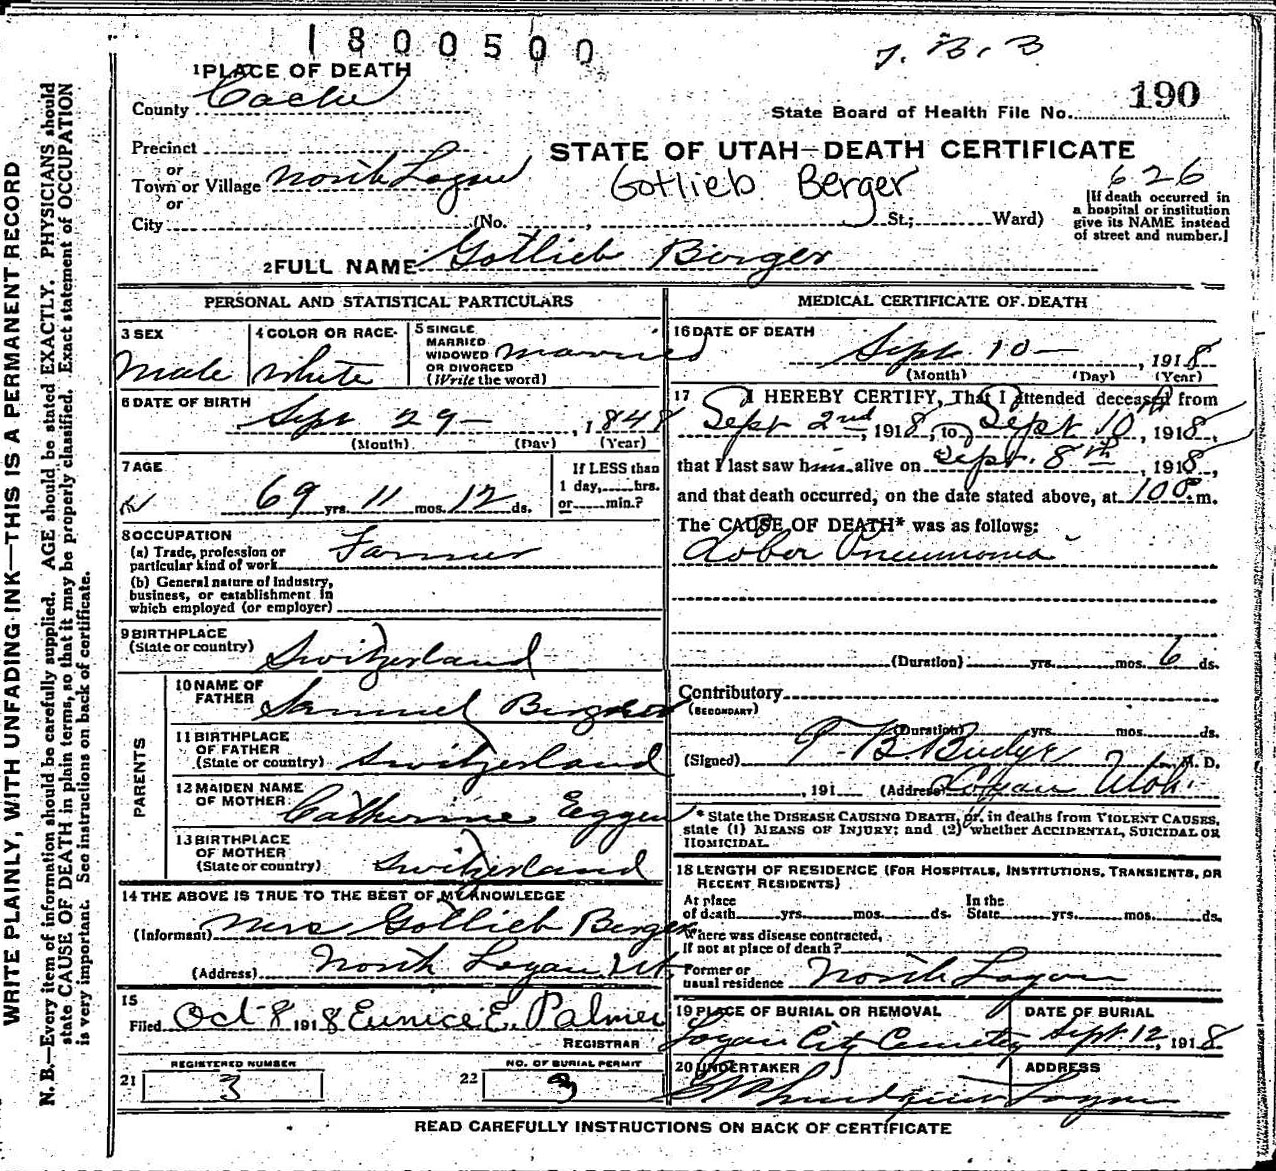 1800500
T. B. B
1 PLACE OF DEATH
County Cache
State Board of Health File No. 190
Precinct
or
Town or Village North Logan
or
City (No. , St.; Ward)
STATE OF UTAH—DEATH CERTIFICATE
Gotlieb Berger
626
[If death occurred in
a hospital or institution
give its NAME instead
of street and number.]
2 FULL NAME Gotlieb Berger
PERSONAL AND STATISTICAL PARTICULARS
3 SEX
Male
4 COLOR OR RACE
White
5 SINGLE
MARRIED
WIDOWED
OR DIVORCED
(Write the word)
married
6 DATE OF BIRTH
Sept 29 — , 1848
(Month) (Day) (Year)
7 AGE
69 yrs. 11 mos. 12 ds.
If LESS than
1 day, hrs.
or min.?
8 OCCUPATION
(a) Trade, profession or
particular kind of work Farmer
(b) General nature of industry,
business, or establishment in
which employed (or employer)
9 BIRTHPLACE
(State or country) Switzerland
PARENTS
10 NAME OF
FATHER Samuel Berger
11 BIRTHPLACE
OF FATHER
(State or country) Switzerland
12 MAIDEN NAME
OF MOTHER Catherine Eggen
13 BIRTHPLACE
OF MOTHER
(State or country) Switzerland
14 THE ABOVE IS TRUE TO THE BEST OF MY KNOWLEDGE
(Informant) Mrs Gottlieb Berger
(Address) North Logan Ut.
15
Filed Oct 8 1918 Eunice E. Palmer
REGISTRAR
REGISTERED NUMBER
21 3
NO. OF BURIAL PERMIT
22 3
MEDICAL CERTIFICATE OF DEATH
16 DATE OF DEATH
Sept 10 — , 1918
(Month) (Day) (Year)
17 I HEREBY CERTIFY, That I attended deceased from
Sept 2nd, 1918, to Sept 10th, 1918,
that I last saw him alive on Sept. 8th, 1918,
and that death occurred, on the date stated above, at 1 00 P.m.
The CAUSE OF DEATH* was as follows:
Lober Pneumonia
(Duration) yrs. mos. 6 ds.
Contributory
(SECONDARY)
(Duration) yrs. mos. ds.
(Signed) T. B. Budge M. D.
, 191 (Address) Logan Utah.
* State the DISEASE CAUSING DEATH, or, in deaths from VIOLENT CAUSES,
state (1) MEANS OF INJURY; and (2) whether ACCIDENTAL, SUICIDAL OR
HOMICIDAL.
18 LENGTH OF RESIDENCE (FOR HOSPITALS, INSTITUTIONS, TRANSIENTS, OR
RECENT RESIDENTS)
At place
of death yrs. mos. ds.
In the
State yrs. mos. ds.
Where was disease contracted,
If not at place of death?
Former or
usual residence North Logan
19 PLACE OF BURIAL OR REMOVAL
Logan City Cemetery
DATE OF BURIAL
Sept. 12, 1918
20 UNDERTAKER
ADDRESS
Logan
READ CAREFULLY INSTRUCTIONS ON BACK OF CERTIFICATE
WRITE PLAINLY, WITH UNFADING INK—THIS IS A PERMANENT RECORD
N. B.—Every item of information should be carefully supplied. AGE should be stated EXACTLY. PHYSICIANS should
state CAUSE OF DEATH in plain terms, so that it may be properly classified. Exact statement of OCCUPATION
is very important. See instructions on back of certificate.